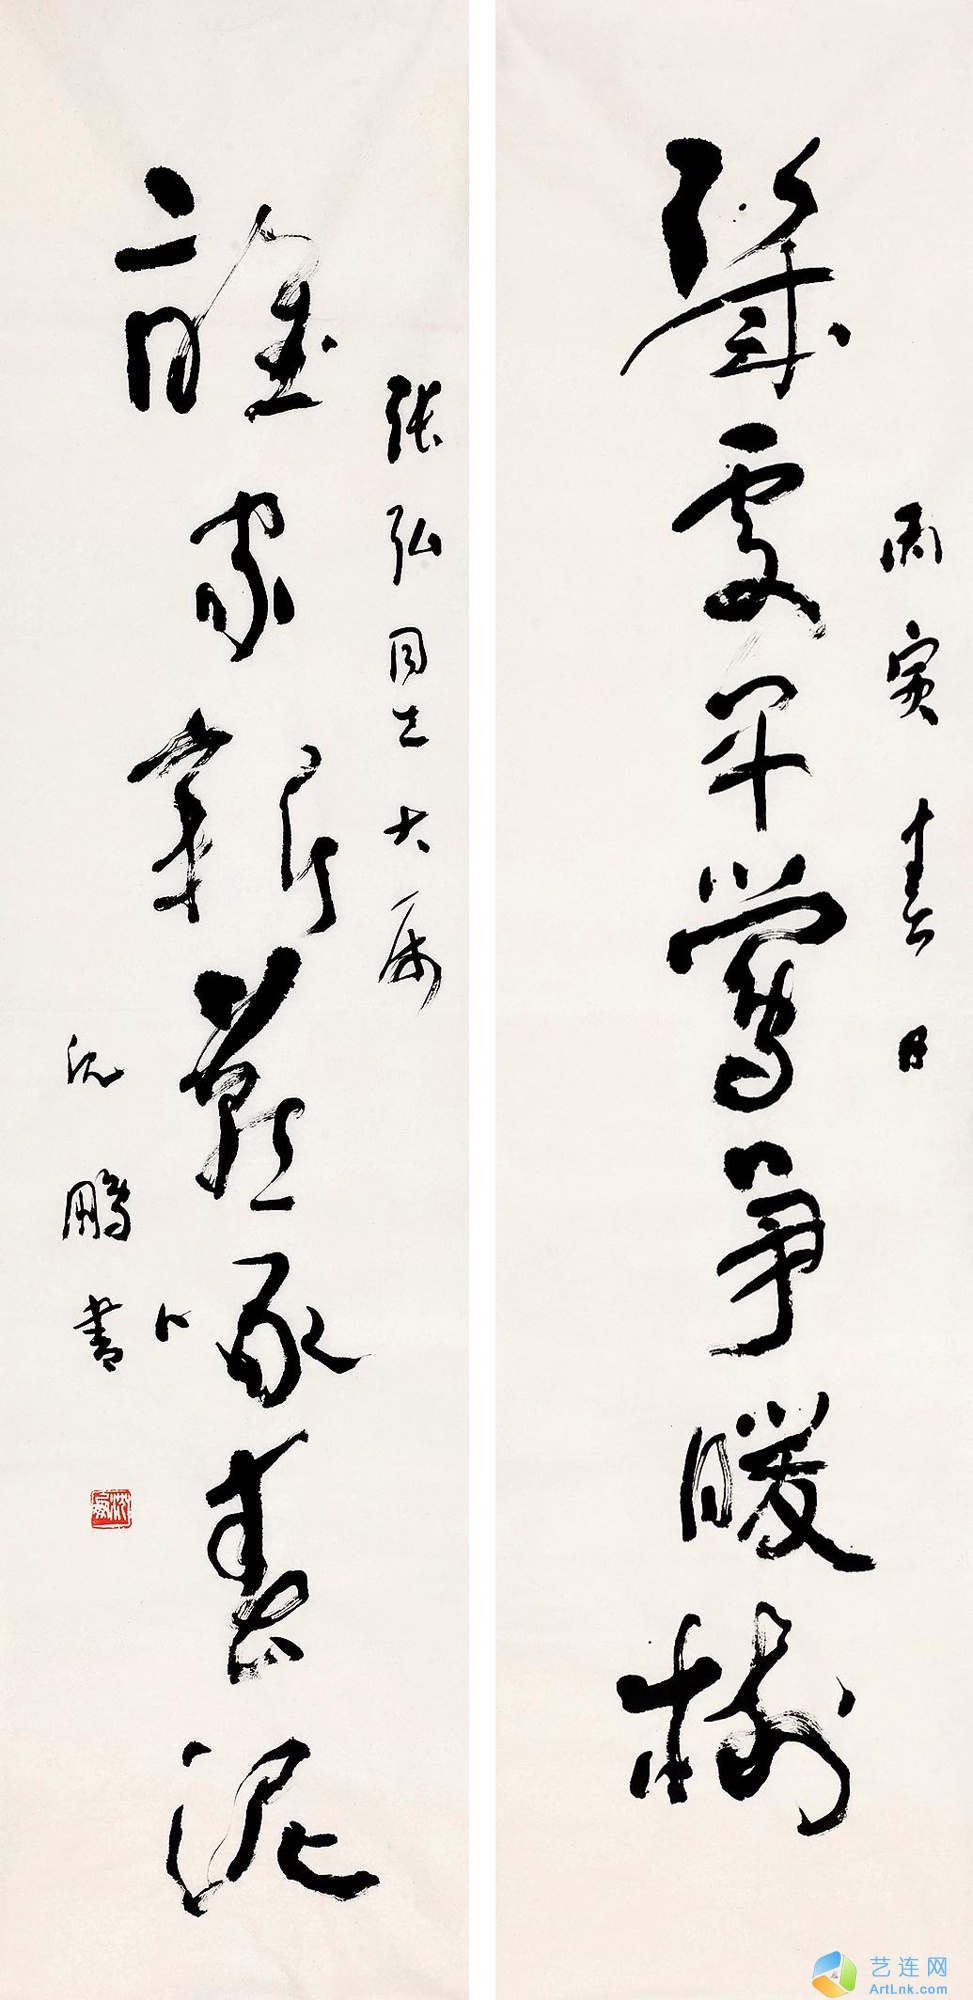 丙寅春日
幾處早鶯爭暖樹
張弘同志大屬
誰家新燕啄春泥
沈鵬書
沈鵬
艺连网
ArtLnk.com